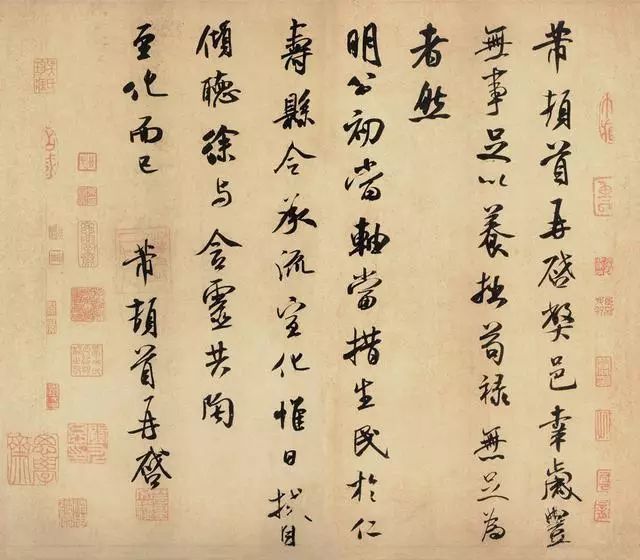 芾頓首再啓獘邑幸歲豐
無事足以養拙苟禄無足為
者然
明公初當軸當措生民於仁
壽縣令承流宣化惟日拭目
傾聽徐与含靈共陶
至化而已 芾頓首再啓